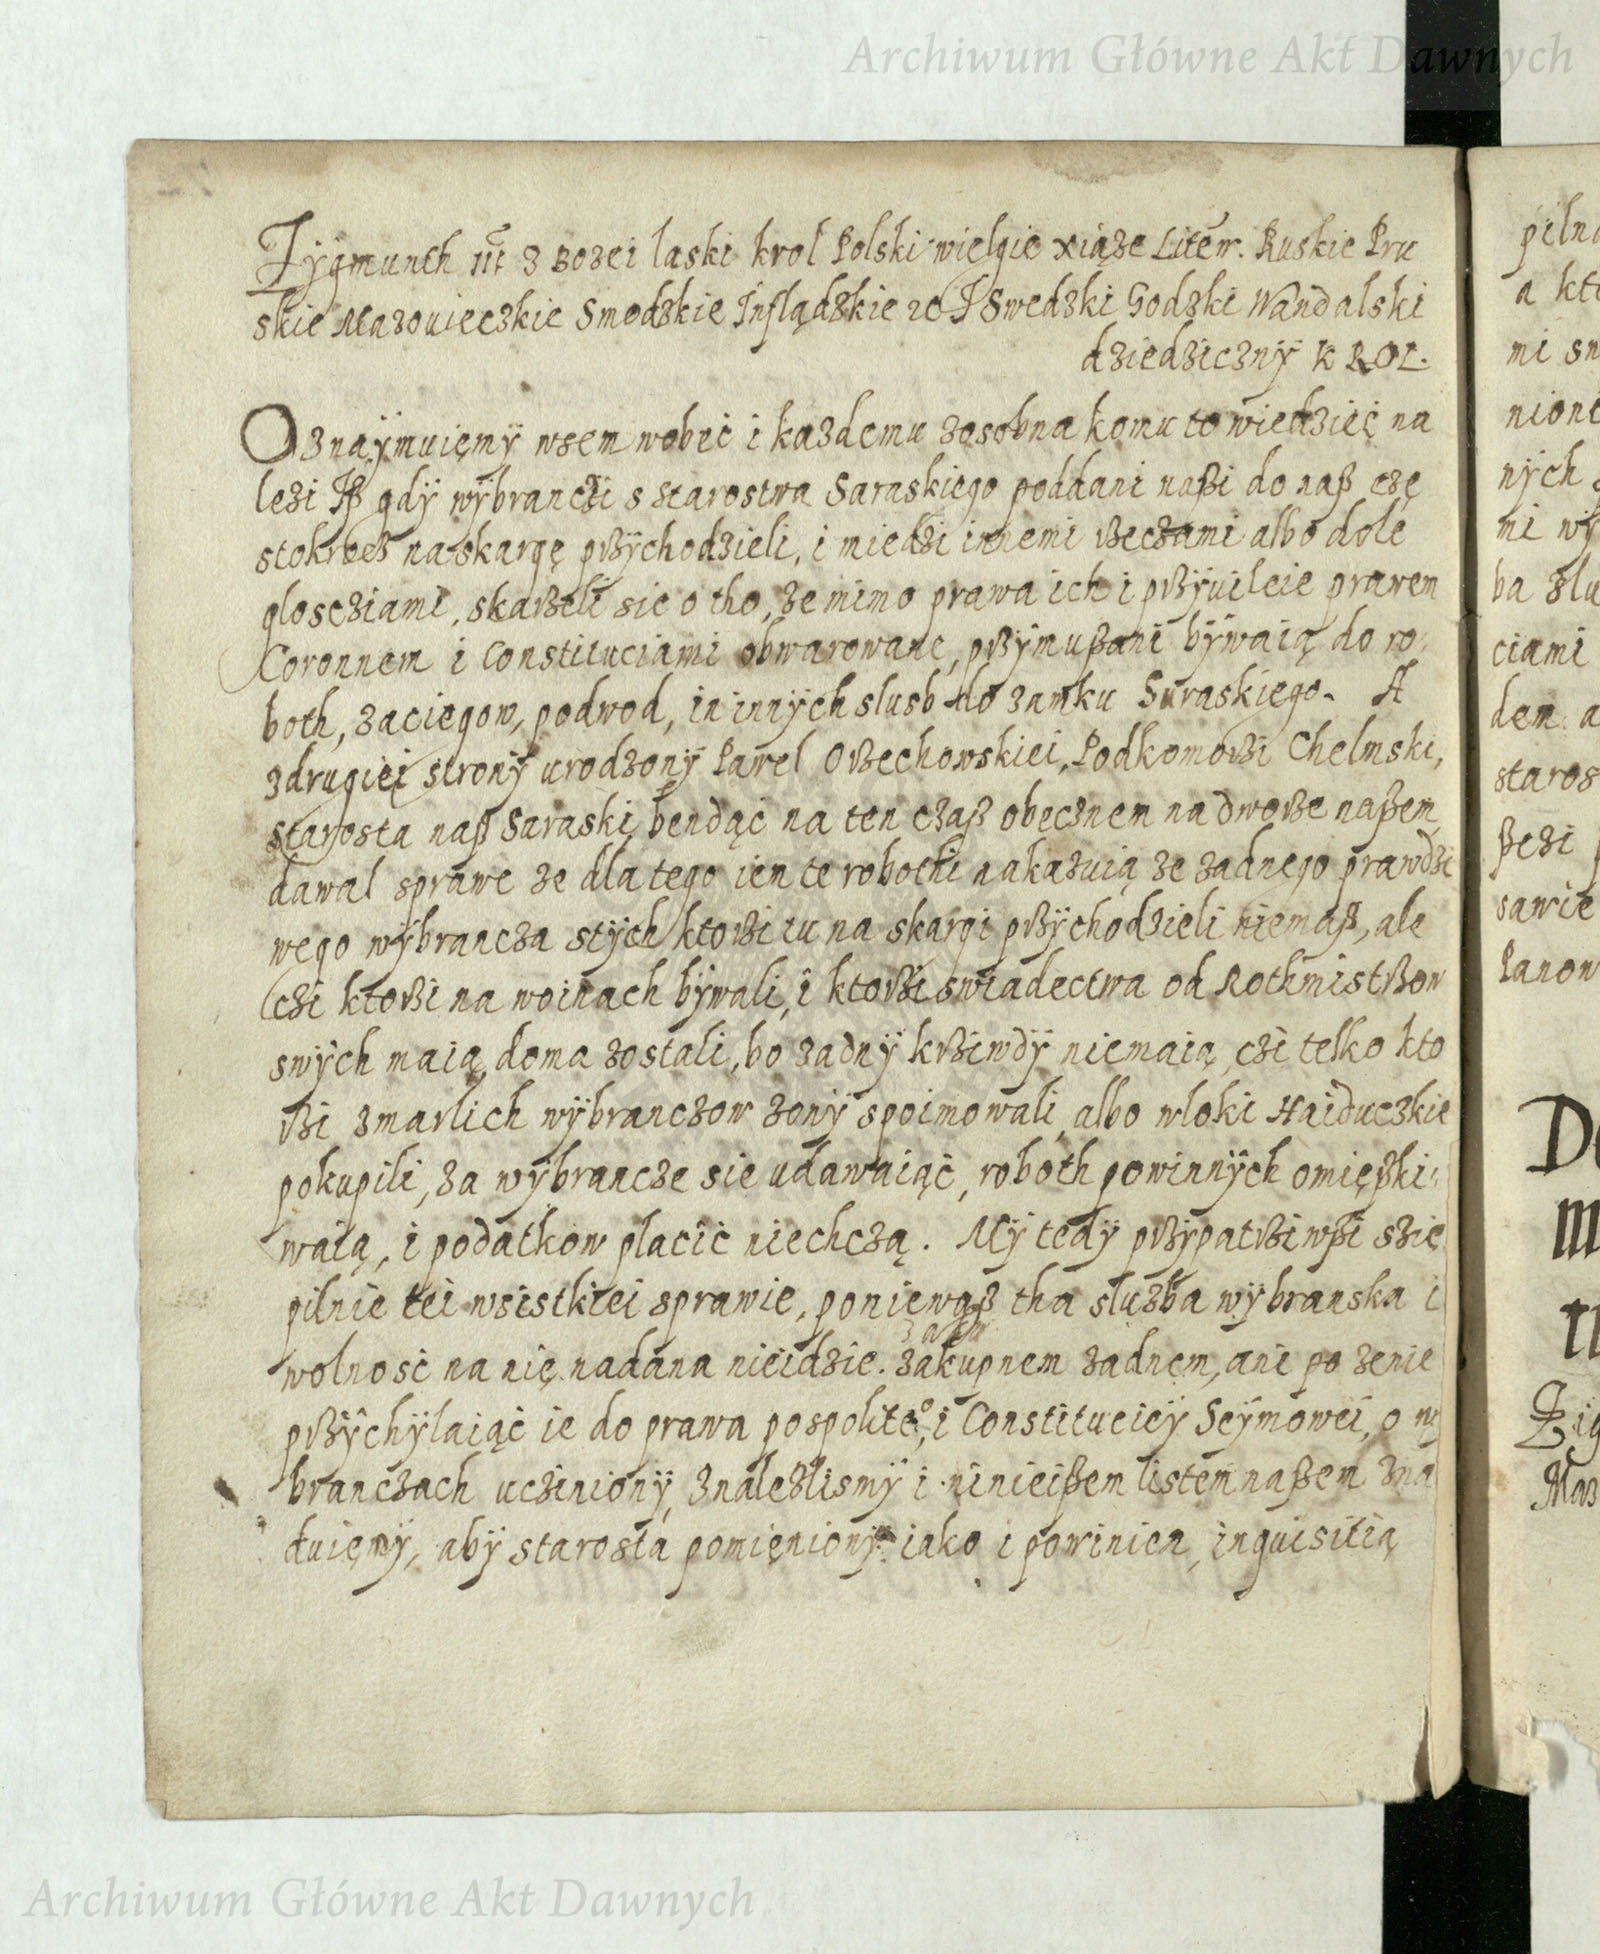 Archiwum Główne Akt Dawnych
Zygmunth III z Bozei laski krol Polski wielgie xiąze Litew. Ruskie Pru
skie Mazouieczkie Smodzkie Inflądzkie zo I Swedzki Godzki Wandalski
dziedziczny KROL.
Oznaymuięmy wsem wobeć i kazdemu zosobna komu to wiedzieć na
lezi Iß gdy wybranczi s starostwa Saraskiego poddani naßi do naß czę
stokroez na skargę prziychodzieli, i miedzi innemi rzeczami albo dole
gloscziami, skarzeli sie o tho, ze mimo prawa ich i przyuileie prawem
Coronnem i Constituciami obwarowane, przymußani bywaią do ro,
both, zaciegow, podwod, i n innych slusb do zamku Suraskiego. A
zdrugiei strony urodzony Pawel Orzechowskiei, Podkomorzi Chelmski,
starosta naß Saraski, bendąć na ten czaß obecznem na dworze naßem
dawal sprawe ze dla tego iem te robothi nakazuią ze zadnego prawdzi
wego wybrancza stych ktorzi tu na skargi przychodzieli niemaß, ale
czi ktorzi na woinach bywali, i ktorzi swiadectwa od Rothmistrzow
swych maią, doma zostali, bo zadny krziwdy niemaią, czi telko kto
rzi zmarlich wybranczow zony spoimowali, albo wloki Haiduczkie
pokupili, za wybrancze sie udawaiąć, roboth powinnych omięßki,
waią, i podatkow placić niechczą. My tedy przypatrziwßi szię
pilnie tei wsistkiei sprawie, poniewaß tha sluzba wybranska i
wolność na nię nadana nieidzie. zakupnem zadnem, ani po zenie
przychylaiąć ie do prawa pospolite°, i Constituciey Seymowei, o wy
branczach ucziniony, znalezlismy i ninieißem listem naßem zna
duięmy, aby starosta pomięniony iako i powinien, inquisitią
pilno
a kto
mi sn
nione
nych
mi wy
ba zlu
ciami
dem a
staros
ßezi
sawie
Panow
Zig
Maz
Archiwum Główne Akt Dawnych